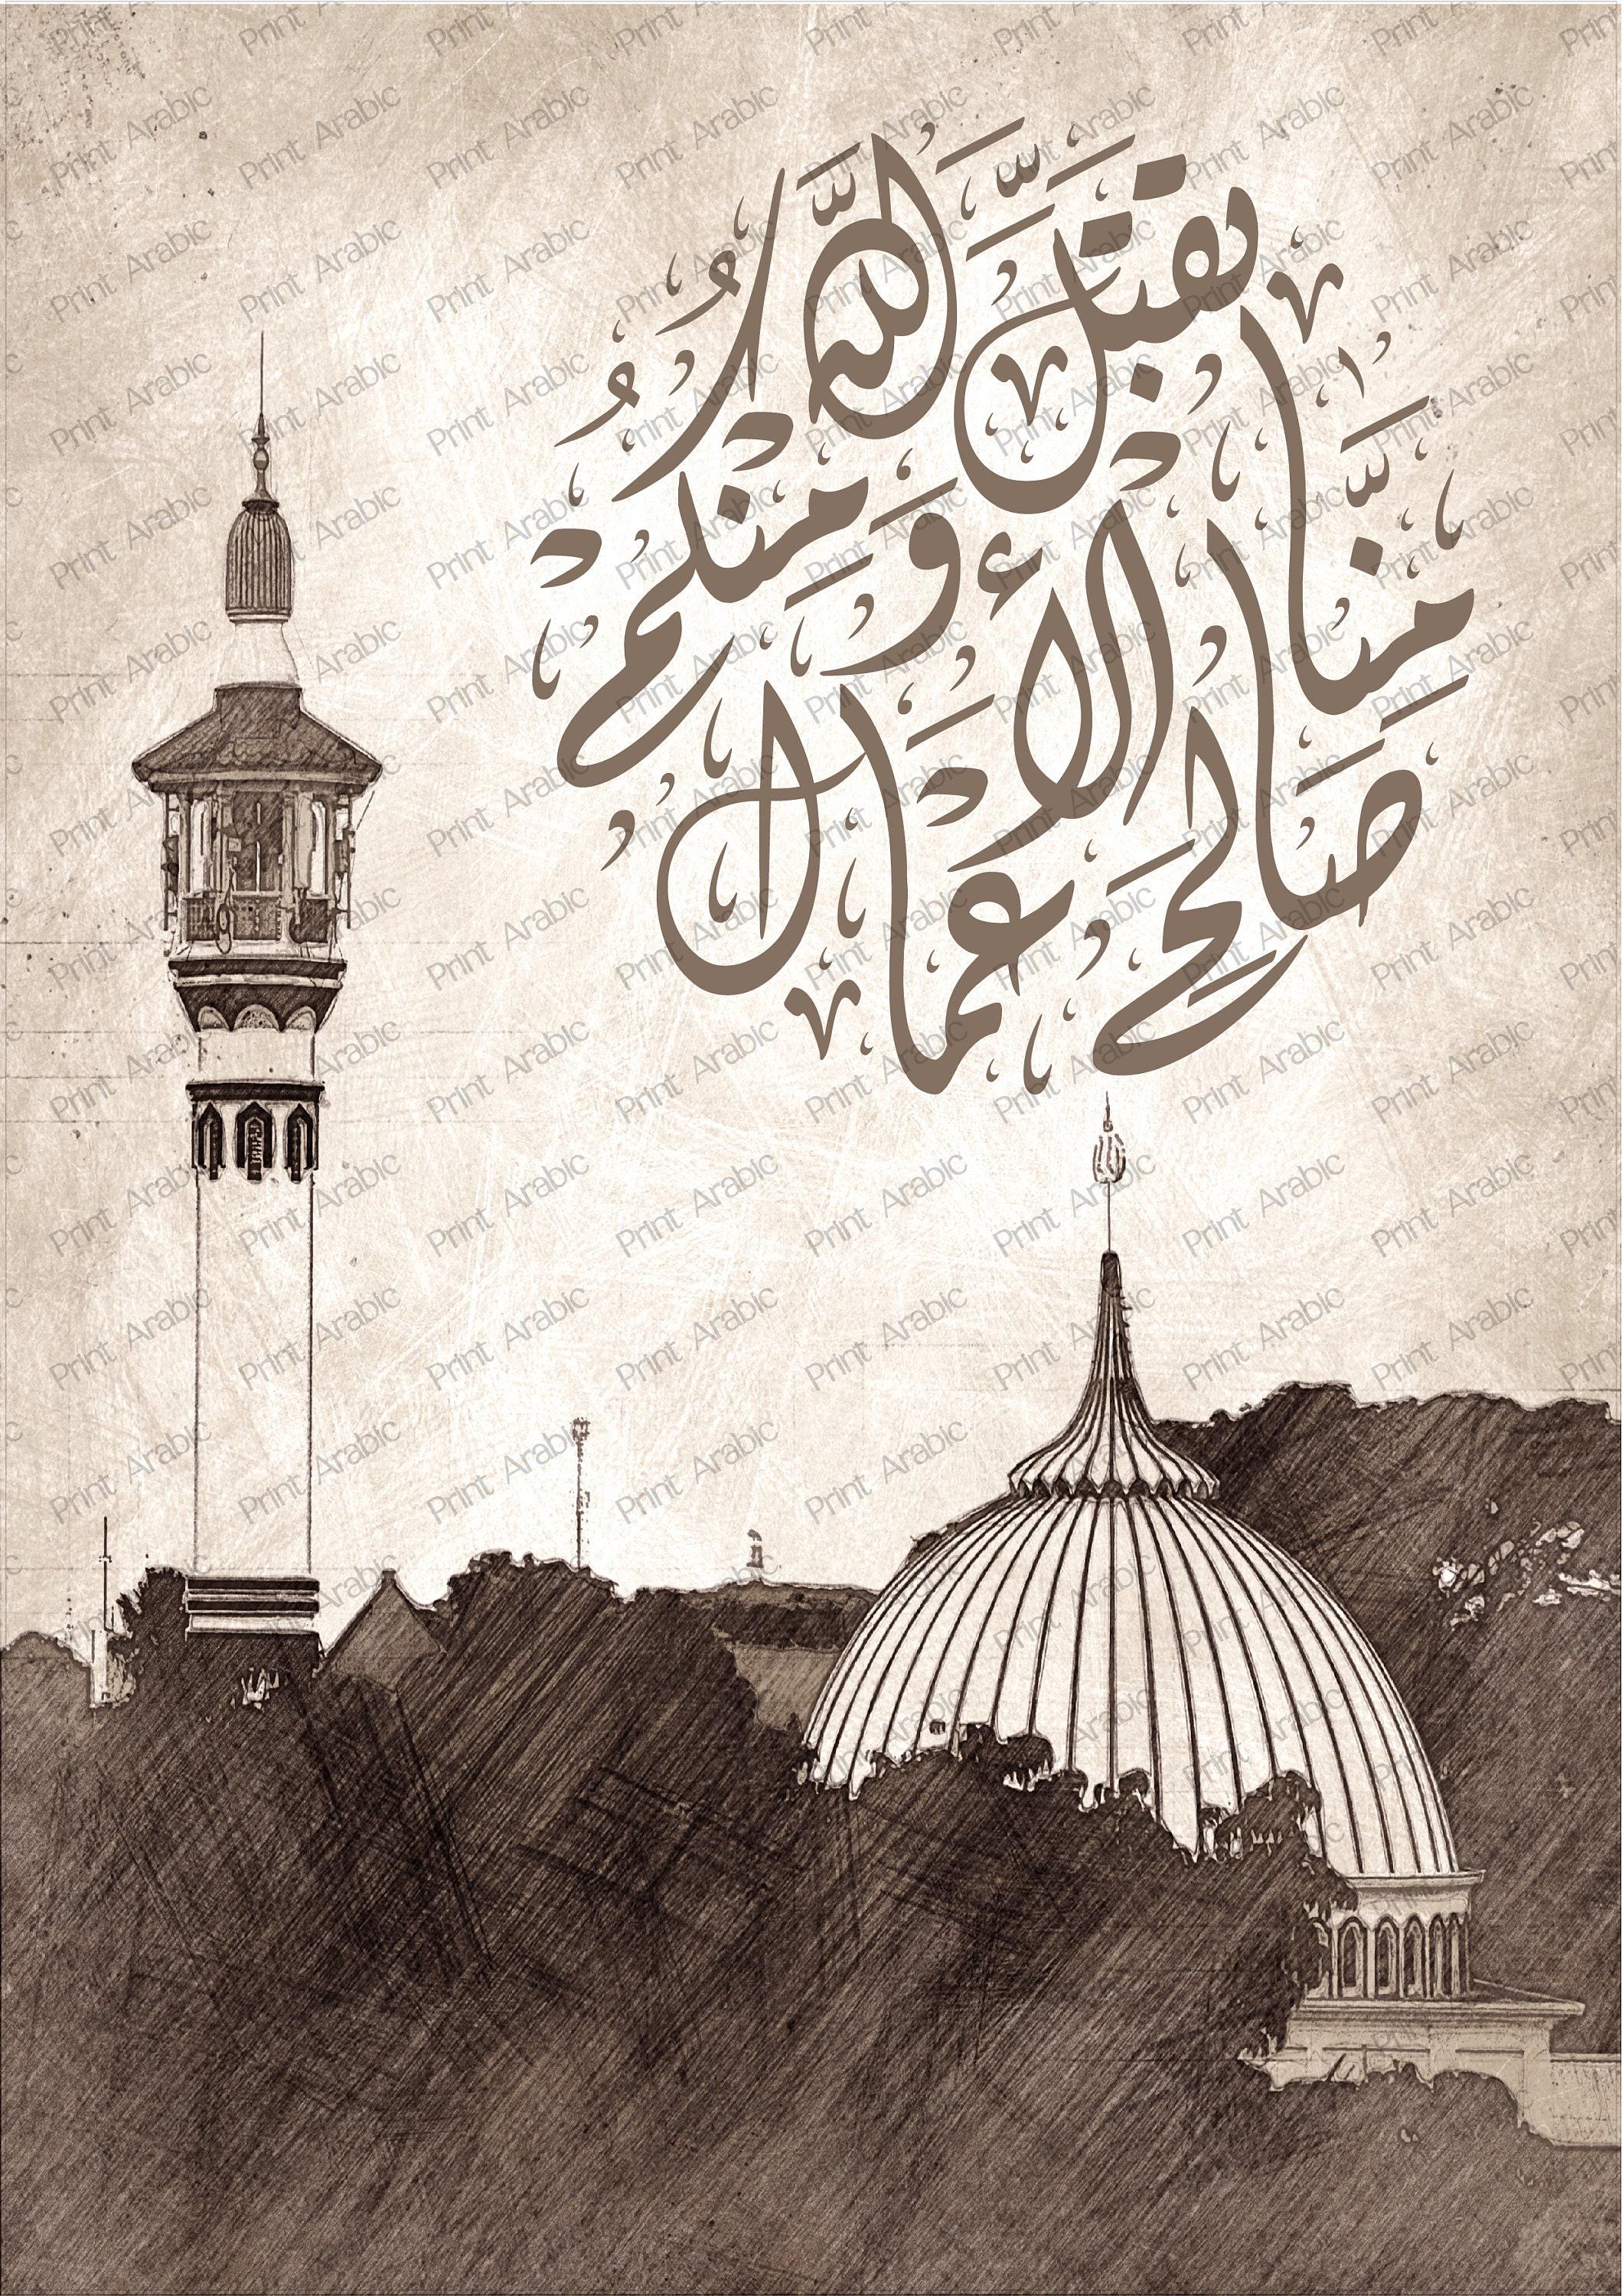 تَقَبَّلَ اللَّهُ
مِنَّا وَمِنْكُمْ
صَالِحَ الأَعْمَالِ
Print Arabic